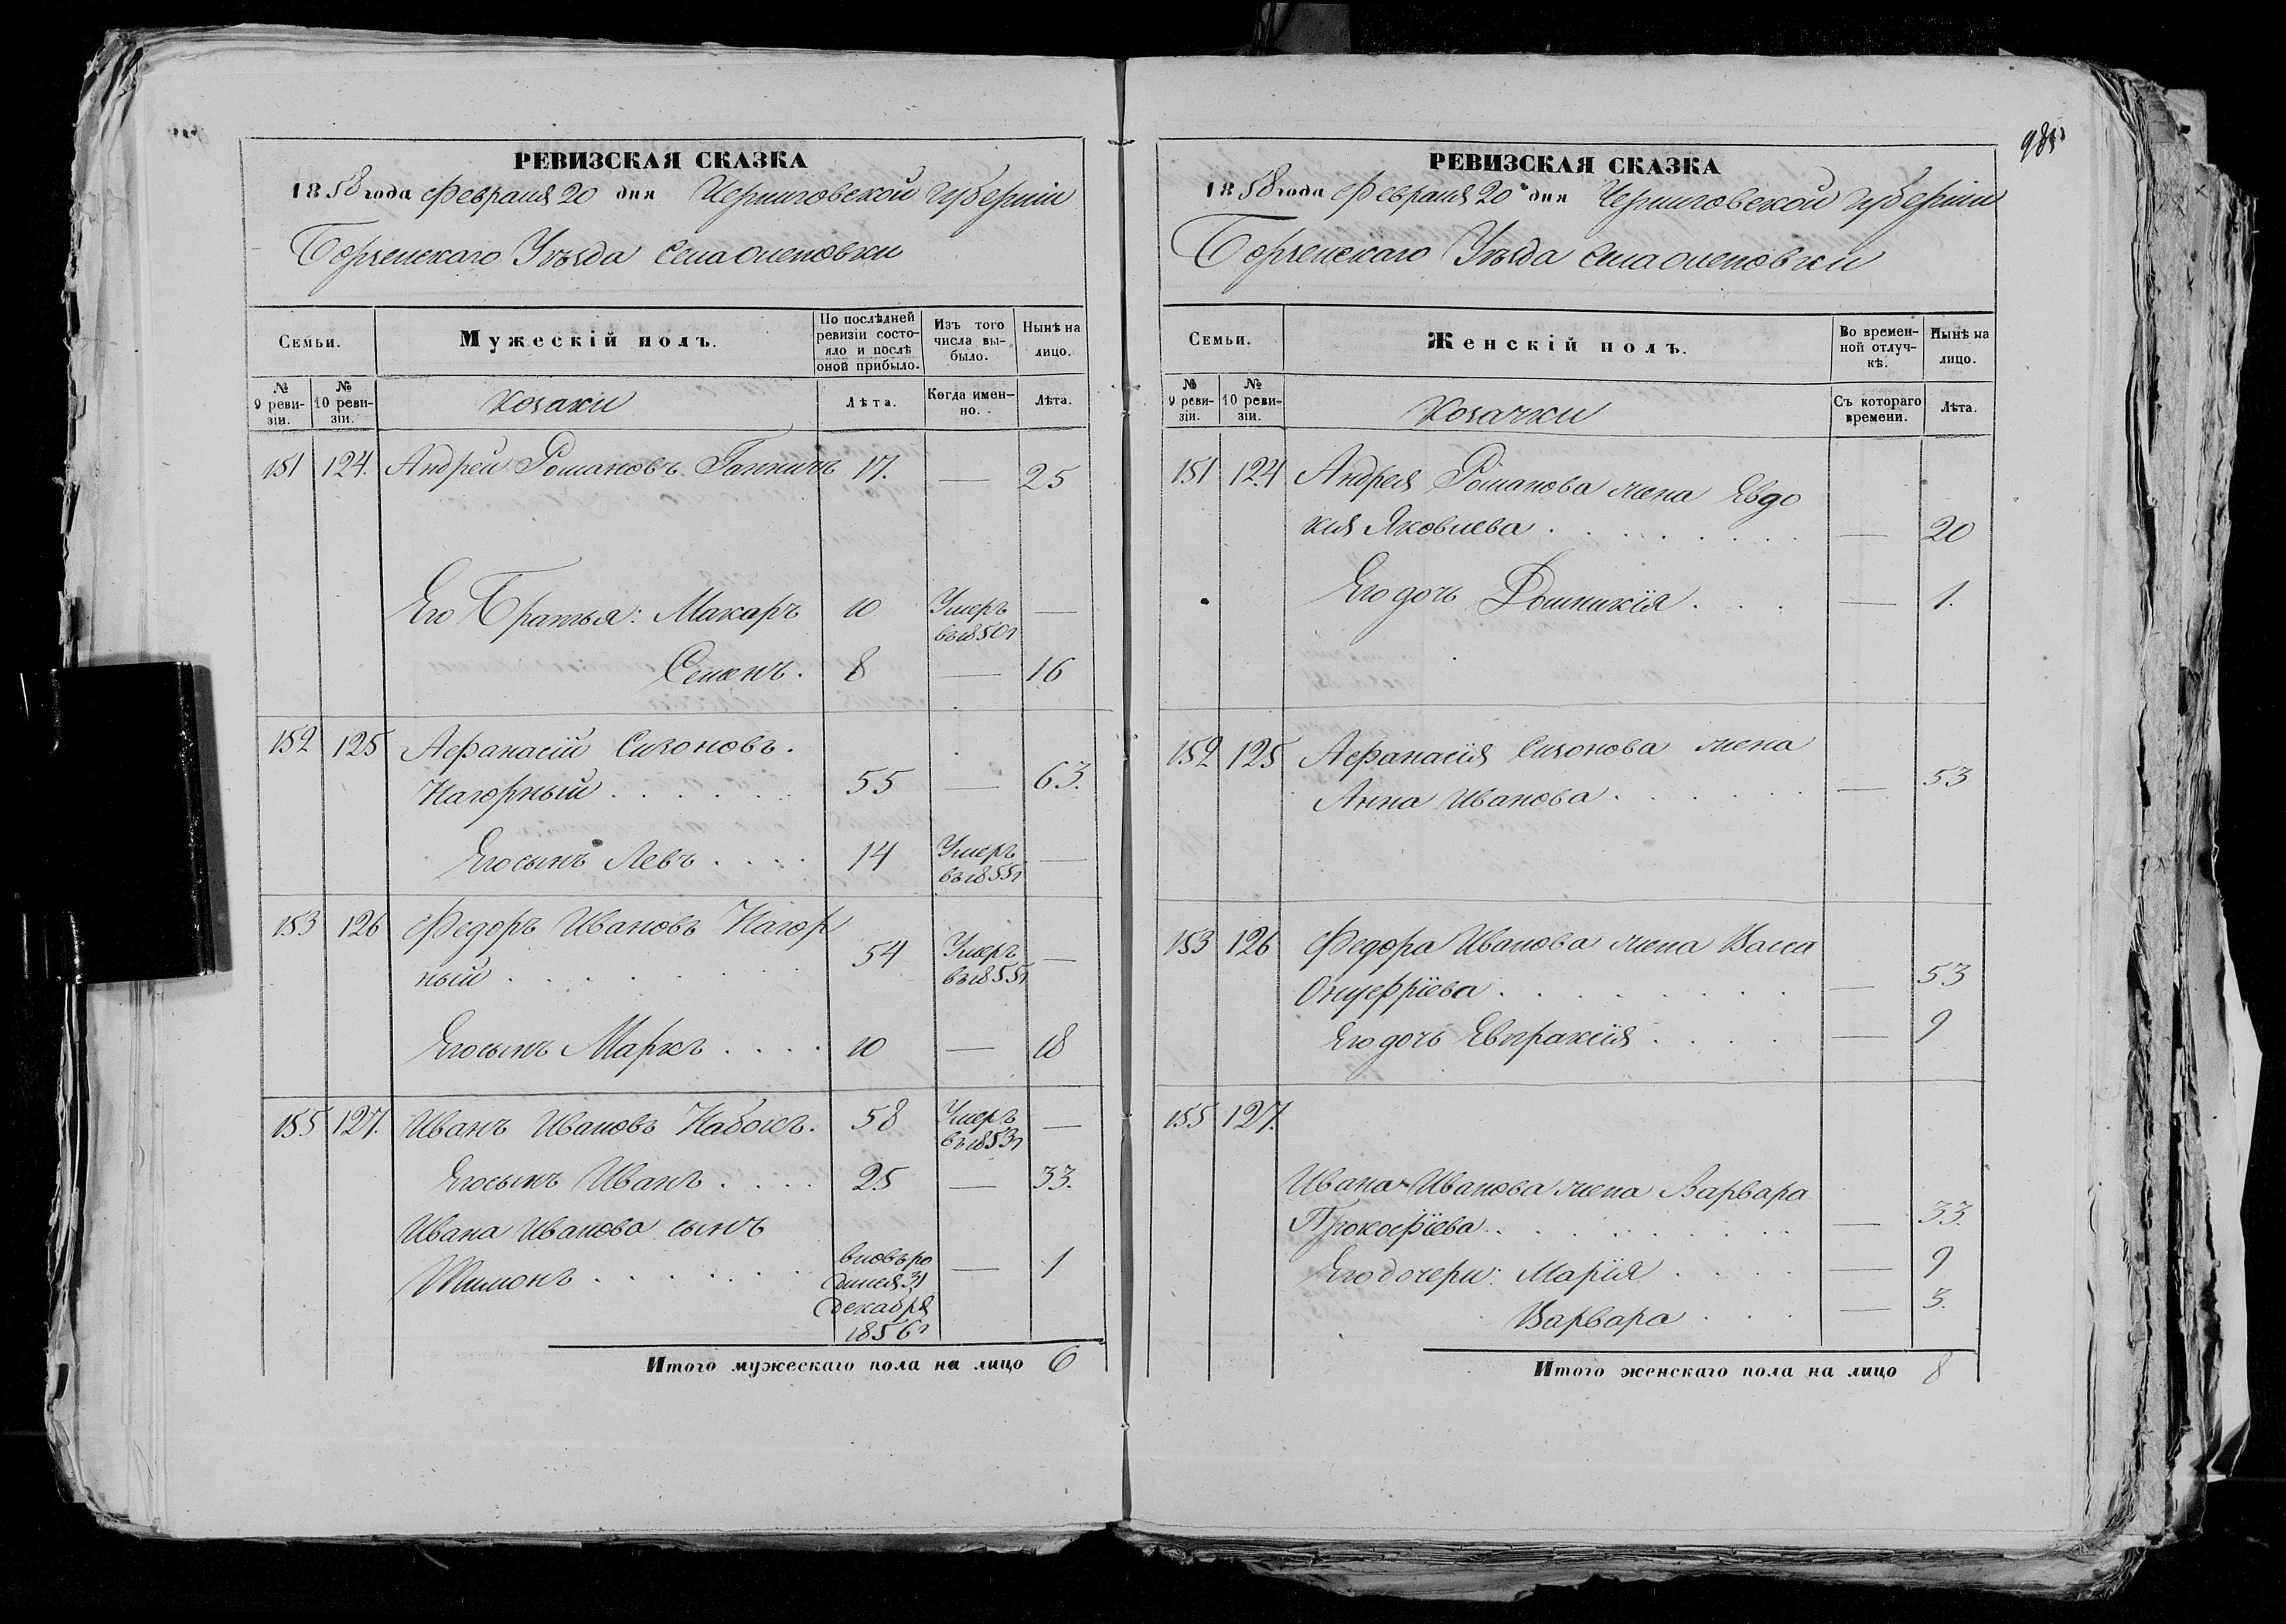 РЕВИЗСКАЯ СКАЗКА
1858 года Февраля 20 дня Черниговской губерніи
Борзенскаго Уѣзда села Оленовки
Семьи.
Мужескій полъ.
По послѣдней ревизіи состояло и послѣ оной прибыло.
Изъ того числа выбыло.
Нынѣ на лицо.
№ 9 ревизіи.
№ 10 ревизіи.
козаки
Лѣта.
Когда именно.
Лѣта.
151 124. Андрей Романовъ 17. — 25
Его Братья: Макаръ 10 Умеръ въ 1850г —
Семенъ. 8 — 16
152 125 Афанасій Сизоновъ.
Нагорный . . . . . . 55 — 63.
Его сынъ Левъ . . . . 14 Умеръ въ 1855г —
153 126 Федоръ Ивановъ Нагор
ный . . . . . . . 54 Умеръ въ 1855г —
Его сынъ Маркъ . . . . 10 — 18
155 127. Иванъ Ивановъ Набокъ. 58 Умеръ въ 1853г —
Его сынъ Иванъ . . . . 25 — 33.
Ивана Иванова сынъ
Тимонъ . . . . . . вновь ро
дился 31
декабря
1856г — 1
Итого мужескаго пола на лицо 6
985
РЕВИЗСКАЯ СКАЗКА
1858 года Февраля 20 дня Черниговской губерніи
Борзенскаго Уѣзда села Оленовки
Семьи.
Женскій полъ.
Во временной отлучкѣ.
Нынѣ на лицо.
№ 9 ревизіи.
№ 10 ревизіи.
козачки
Съ котораго времени.
Лѣта.
151 124 Андрея Романова жена Евдо
кия Яковлева . . . . . . . . — 20
Его дочь Домникія . . . — 1.
152 125 Афанасія Сизонова жена
Анна Иванова . . . . . . — 53
153 126 Федора Иванова жена Васса
Онуфріева . . . . . . . . — 53
Его дочь Евпраксія . . . . — 9
155 127.
Ивана Иванова жена Варвара
Прокофіева . . . . . . . . . — 33.
Его дочери: Марія . . . . — 9
Варвара . . . — 3.
Итого женскаго пола на лицо 8